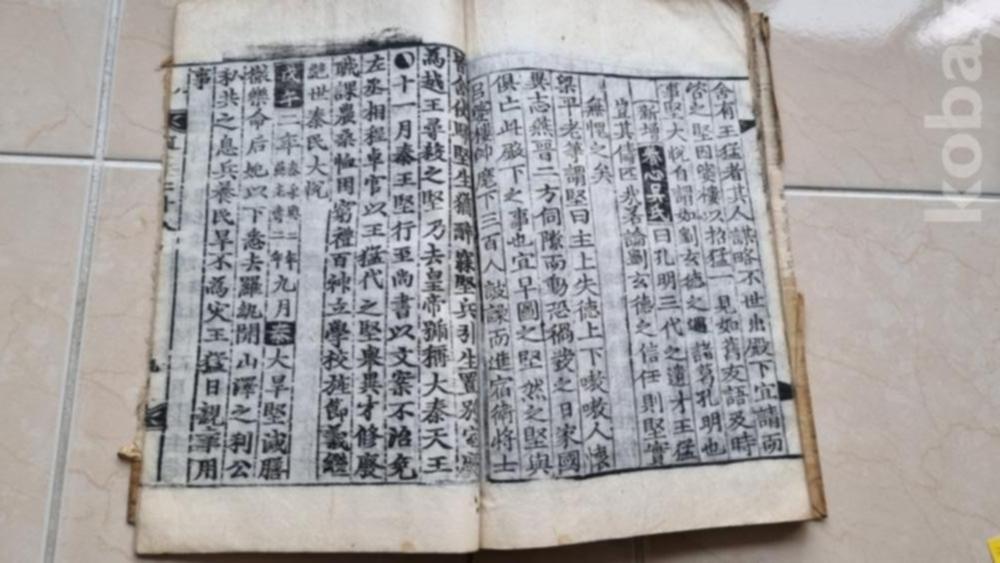 舍有王猛者其人謀略不世出殿下宜請而
咨之堅因婆樓以招猛一見如舊友語及時
事堅大悅自謂如劉玄德之遇諸葛孔明也
新增養心吳氏曰孔明三代之遺才王猛
豈其儔匹哉若論劉玄德之信任則堅實
無愧之矣
梁平老等謂堅曰主上失德上下嗷嗷人懷
異志燕晉二方伺隙而動恐禍發之日家國
俱亡此殿下之事也宜早圖之堅然之堅與
呂婆樓帥麾下三百人鼓譟而進宿衛將士
舍仗歸堅生猶醉寐堅兵引生置別室廢
爲越王尋殺之堅乃去皇帝號稱大秦天王
十一月秦王堅行至尚書以文案不治免
左丞相程卓官以王猛代之堅擧異才修廢
職課農桑恤困窮禮百神立學校旌節義繼
絶世秦民大悅
戊午二年九月秦大旱堅減膳
撤樂命后妃以下悉去羅紈開山澤之利公
私共之息兵養民旱不爲灾王猛日親幸用
事
koba